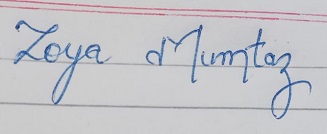 Zoya Mumtaz